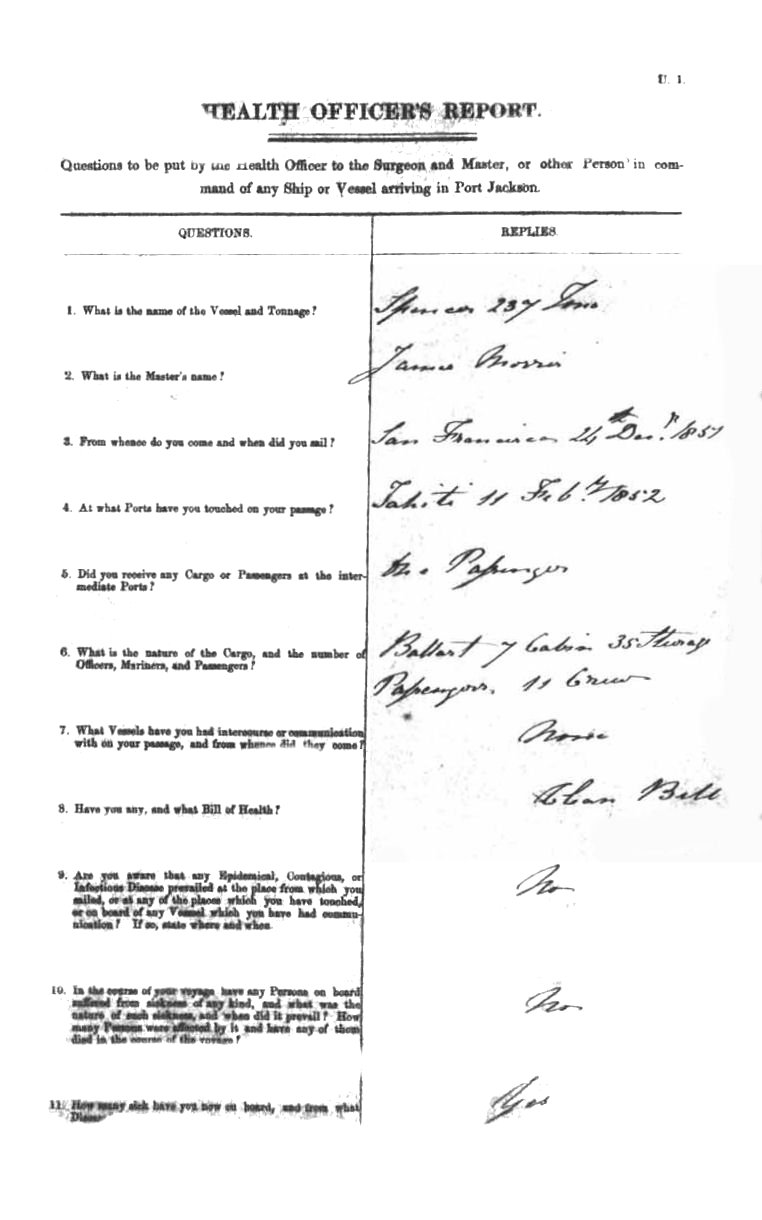 U. 1.
HEALTH OFFICER'S REPORT.
Questions to be put by the Health Officer to the Surgeon and Master, or other Person in com-
mand of any Ship or Vessel arriving in Port Jackson.
QUESTIONS. REPLIES.
1. What is the name of the Vessel and Tonnage? Spencer 237 Tons
2. What is the Master's name? James Morris
3. From whence do you come and when did you sail? San Francisco 24th Decr. 1851
4. At what Ports have you touched on your passage? Tahiti 11 Feby. 1852
5. Did you receive any Cargo or Passengers at the inter-
mediate Ports? Passenger
6. What is the nature of the Cargo, and the number of
Officers, Mariners, and Passengers?
Ballast 7 Cabin 35 Steerage
Passengers. 11 Crew
7. What Vessels have you had intercourse or communication
with on your passage, and from whence did they come? None
8. Have you any, and what Bill of Health? Clean Bill
9. Are you aware that any Epidemical, Contagious, or
Infectious Disease prevailed at the place from which you
sailed, or at any of the places which you have touched,
or on board of any Vessel which you have had commu-
nication? If so, state where and when. No
10. In the course of your voyage have any Persons on board
suffered from sickness of any kind, and what was the
nature of such sickness, and when did it prevail? How
many Persons were affected by it and have any of them
died in the course of the voyage? No
11. How many sick have you now on board, and from what
Disease Yes